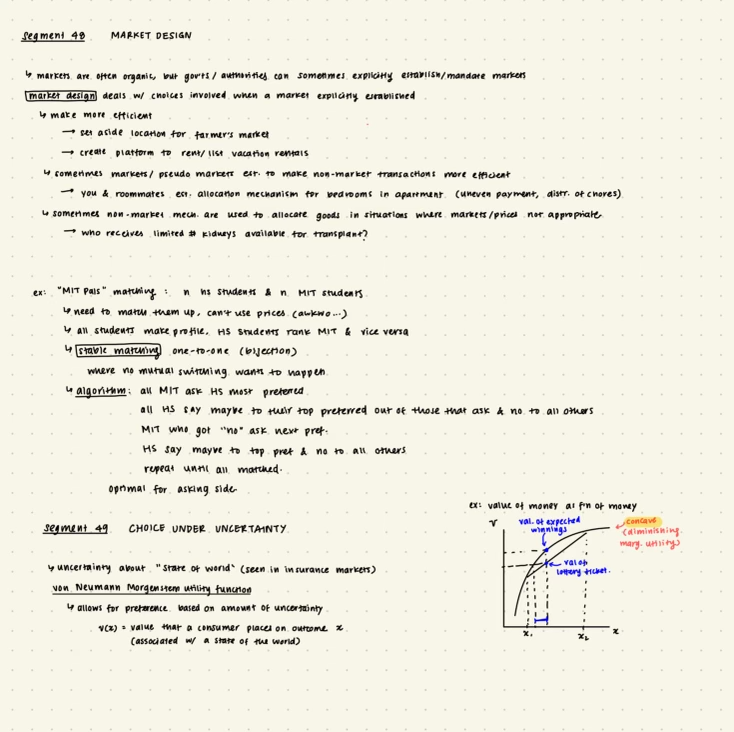 Segment 48 MARKET DESIGN
↳ markets are often organic, but gov'ts / authorities can sometimes explicitly establish/mandate markets
market design deals w/ choices involved when a market explicitly established
↳ make more efficient
→ set aside location for farmer's market
→ create platform to rent/list vacation rentals
↳ sometimes markets/ pseudo markets est. to make non-market transactions more efficient
→ you & roommates est. allocation mechanism for bedrooms in apartment (uneven payment, distr. of chores)
↳ sometimes non-market mech. are used to allocate goods in situations where markets/prices not appropriate
→ who receives limited # kidneys available for transplant?
ex: "MIT Pals" matching : n hs students & n MIT students
↳ need to match them up, can't use prices (awkwo...)
↳ all students make profile, HS students rank MIT & vice versa
↳ stable matching one-to-one (bijection)
where no mutual switching wants to happen
↳ algorithm: all MIT ask HS most preferred
all HS say maybe to their top preferred out of those that ask & no to all others
MIT who got "no" ask next pref.
HS say maybe to top pref & no to all others
repeat until all matched.
optimal for asking side
Segment 49 CHOICE UNDER UNCERTAINTY
↳ uncertainty about "state of world" (seen in insurance markets)
von Neumann Morgenstern utility function
↳ allows for preference based on amount of uncertainty
v(x) = value that a consumer places on outcome x
(associated w/ a state of the world)
ex: value of money as f'n of money
v
val. of expected
winnings
concave
(diminishing
marg. utility)
val of
lottery ticket.
x₁
x₂
x